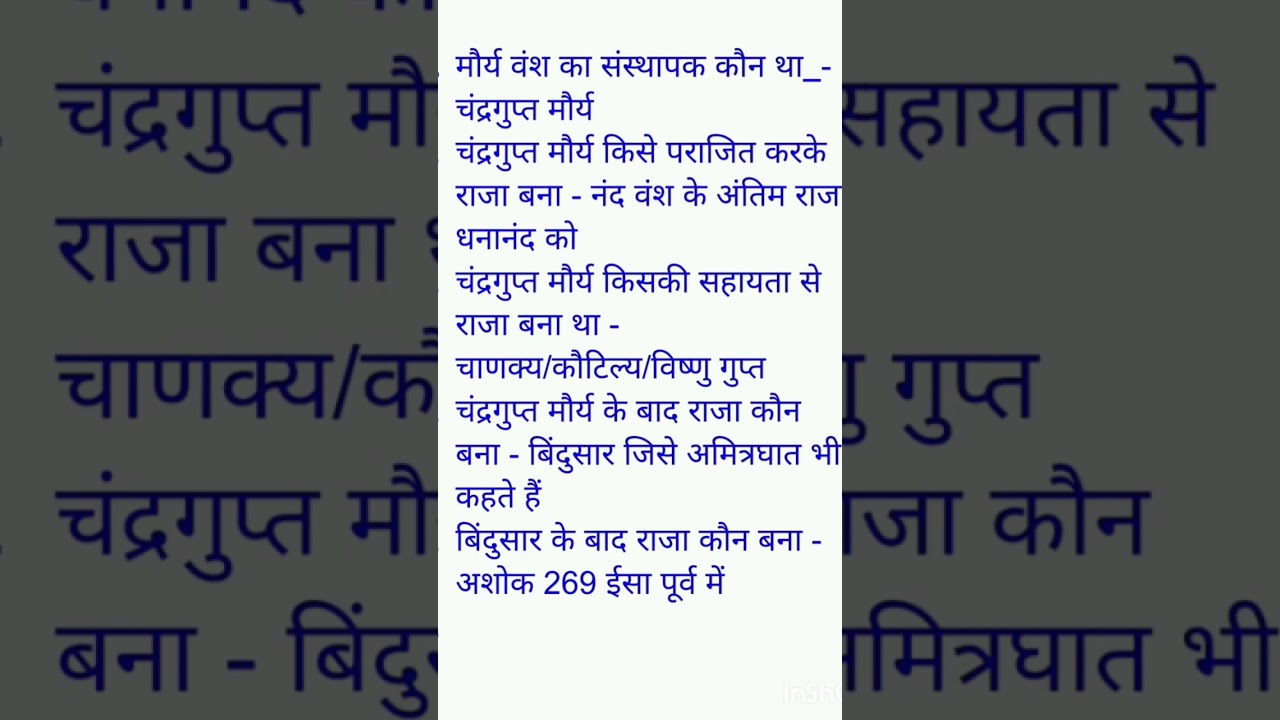 मौर्य वंश का संस्थापक कौन था_-
चंद्रगुप्त मौर्य
चंद्रगुप्त मौर्य किसे पराजित करके
राजा बना - नंद वंश के अंतिम राज
धनानंद को
चंद्रगुप्त मौर्य किसकी सहायता से
राजा बना था -
चाणक्य/कौटिल्य/विष्णु गुप्त
चंद्रगुप्त मौर्य के बाद राजा कौन
बना - बिंदुसार जिसे अमित्रघात भी
कहते हैं
बिंदुसार के बाद राजा कौन बना -
अशोक 269 ईसा पूर्व में